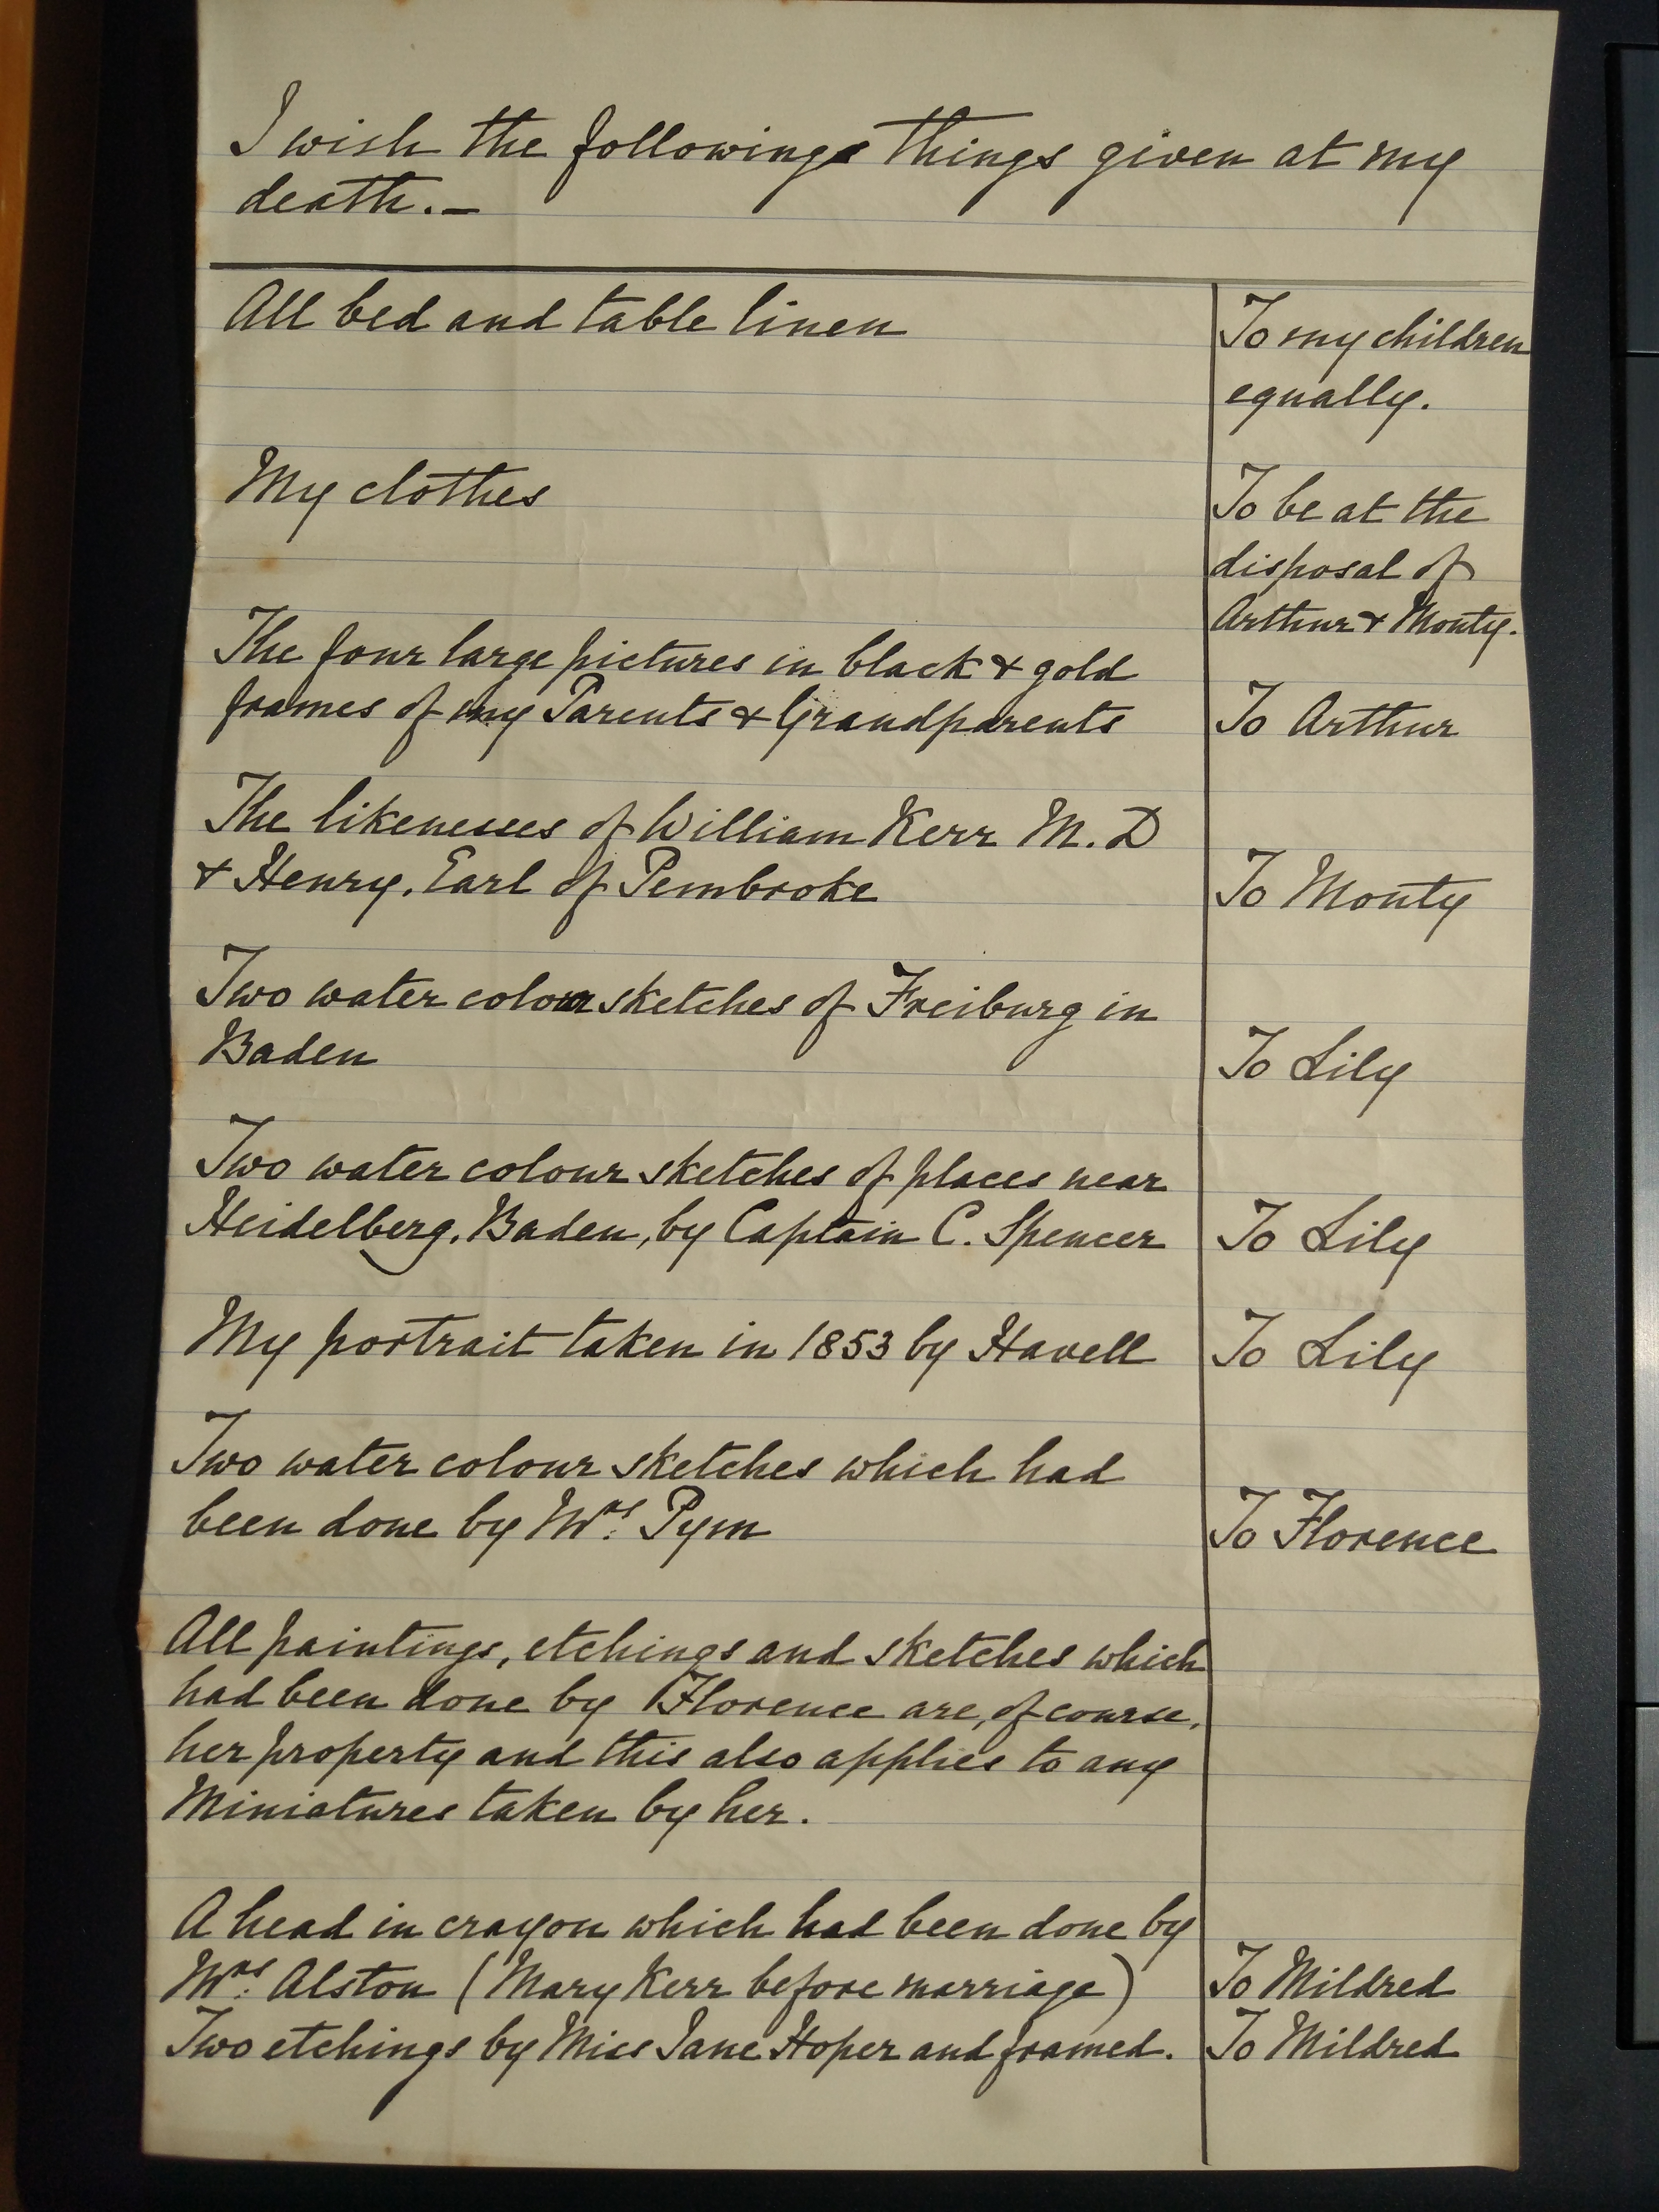 I wish the following things given at my
death.—
All bed and table linen
To my children
equally.
My clothes
To be at the
disposal of
Arthur & Monty.
The four large pictures in black & gold
frames of my Parents & Grandparents
To Arthur
The likenesses of William Kerr M.D
& Henry, Earl of Pembroke
To Monty
Two water colour sketches of Freiburg in
Baden
To Lily
Two water colour sketches of places near
Heidelberg, Baden, by Captain C. Spencer
To Lily
My portrait taken in 1853 by Havell
To Lily
Two water colour sketches which had
been done by Mrs. Pym
To Florence
All paintings, etchings and sketches which
had been done by Florence are, of course,
her property and this also applies to any
Miniatures taken by her.
A head in crayon which had been done by
Mrs. Alston (Mary Kerr before marriage)
To Mildred
Two etchings by Miss Jane Hoper and framed.
To Mildred